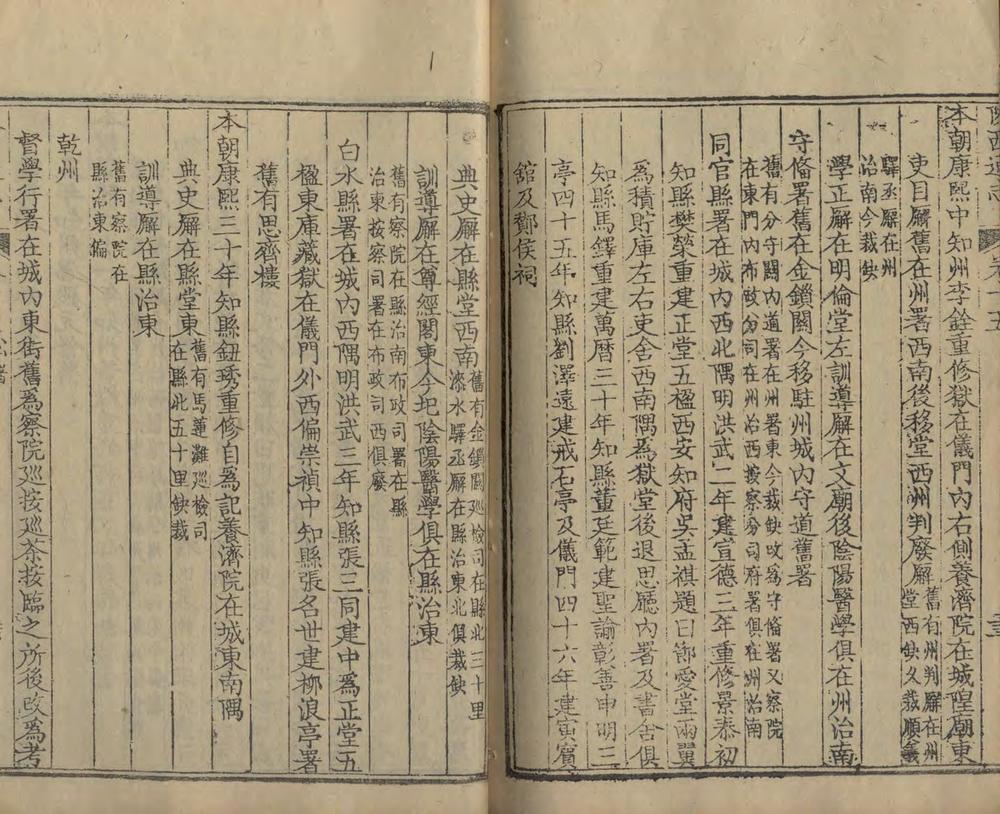 陝西通志 卷十五 三
本朝康熙中知州李銓重修獄在儀門內右側養濟院在城隍廟東
吏目廨舊在州署西南後移堂西州判廢廨舊有州判廨在州堂西缺久裁順義
驛丞廨在州治南今裁缺
學正廨在明倫堂左訓導廨在文廟後陰陽醫學俱在州治南
守備署舊在金鎖關今移駐州城內守道舊署
舊有分守關內道署在州署東今裁缺改爲守備署又察院在東門內布政分司在州治西按察分司府署俱在州治南
同官縣署在城內西北隅明洪武二年建宣德三年重修景泰初
知縣樊榮重建正堂五楹西安知府吳孟祺題曰節愛堂兩翼
爲積貯庫左右吏舍西南隅爲獄堂後退思廳內署及書舍俱
知縣馬鐸重建萬曆三十年知縣董廷範建聖諭彰善申明三
亭四十五年知縣劉澤遠建戒石亭及儀門四十六年建寅賓
館及酇侯祠
典史廨在縣堂西南舊有金鎖關巡檢司在縣北三十里漆水驛丞廨在縣治東北俱裁缺
訓導廨在尊經閣東今圯陰陽醫學俱在縣治東
舊有察院在縣治南布政司署在縣治東按察司署在布政司西俱廢
白水縣署在城內西隅明洪武三年知縣張三同建中爲正堂五
楹東庫藏獄在儀門外西偏崇禎中知縣張名世建柳浪亭署
舊有思齊樓
本朝康熙三十年知縣鈕琇重修自爲記養濟院在城東南隅
典史廨在縣堂東舊有馬蓮灘巡檢司在縣北五十里缺裁
訓導廨在縣治東
舊有察院在縣治東偏
乾州
督學行署在城內東街舊爲察院巡按巡茶按臨之所後改爲考